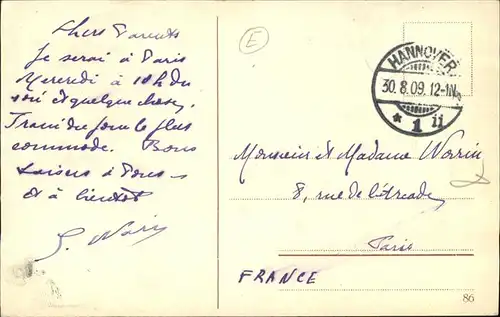 Chers Parents
Je serai à Paris
Mercredi à 10h du
soir et quelque chose,
Train du jour le plus
commode. Bons
baisers à tous
et à bientôt
(E)
HANNOVER
30.8.09. 12-1N.
* 1 ii
Monsieur et Madame
8, rue de
Paris
FRANCE
86